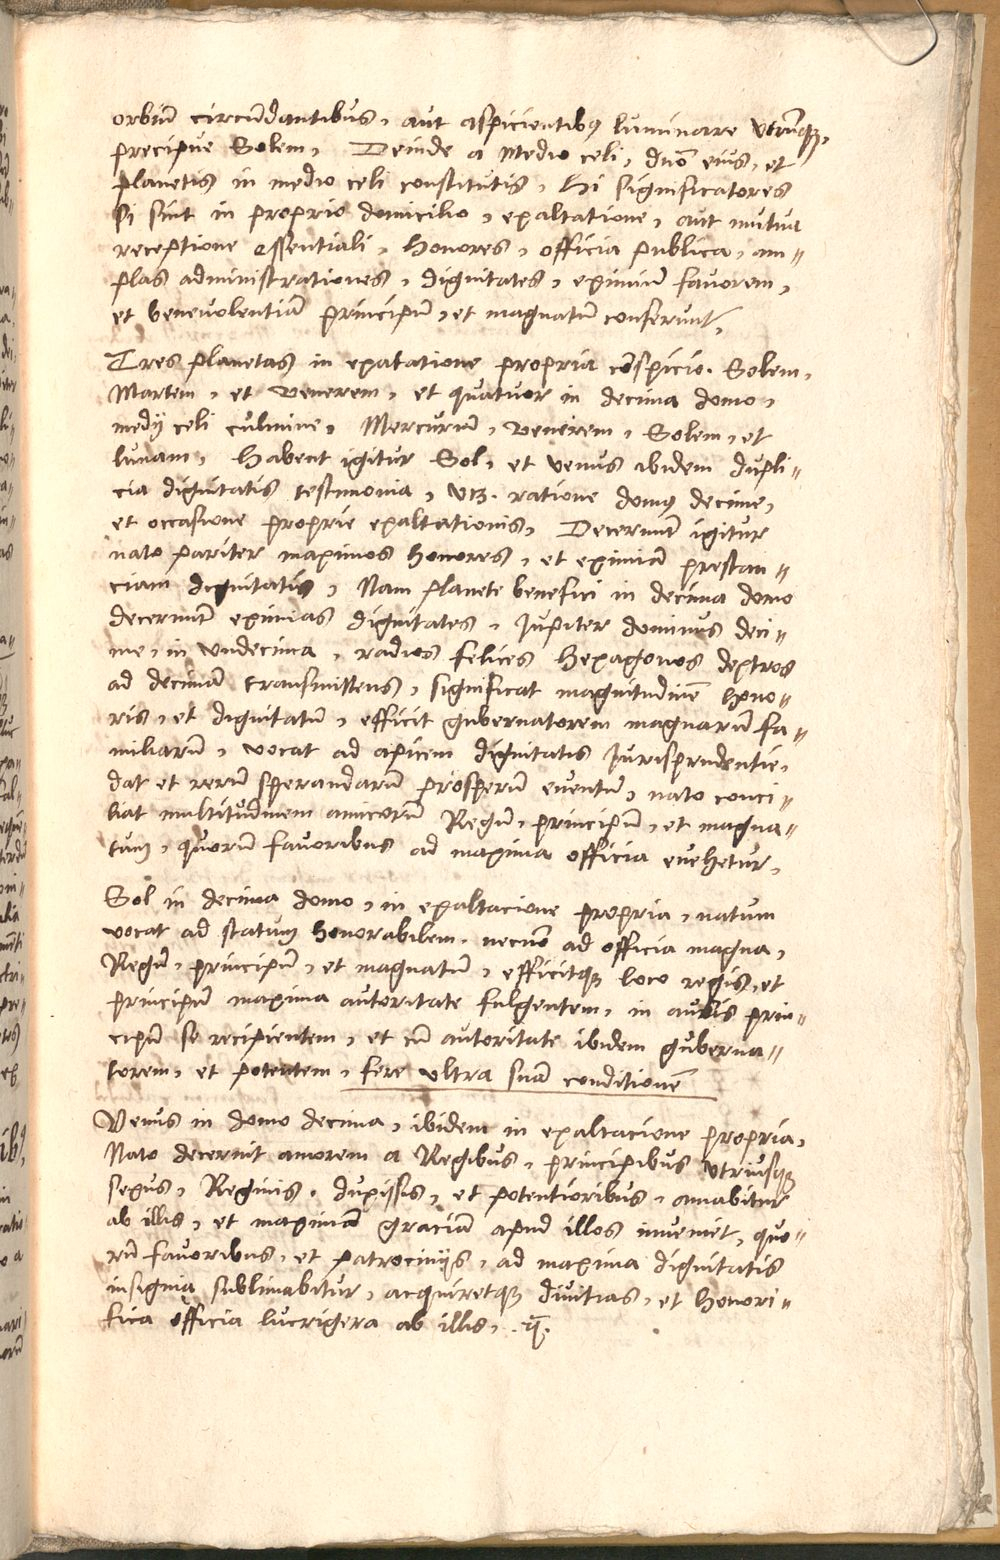 orbiũ circũdantibus, aut aspicientibꝰ luminare vtrũqꝫ,
precipue Solem, Deinde a Medio celi, dnõ eius, et
planetis in medio celi constitutis, Hi significatores
Si sint in proprio domicilio, exaltatione, aut mutua
receptione essentiali, Honores, officia publica, am〃
plas administrationes, dignitates, eximiũ favorem,
et beneuolentiã principũ, et magnatũ conferunt,
Tres planetas in exaltatione propria cõspicio. Solem,
Martem, et Venerem, et quatuor in decima domo,
medij celi culmine, Mercuriũ, Venerem, Solem, et
lunam, Habent igitur Sol, et Venus ibidem dupli〃
cia dignitatis testimonia, vꝫ. ratione domꝰ decime,
et occasione proprie exaltationis, Decernũt igitur
nato pariter maximos honores, et eximiã prestan〃
ciam dignitatis, Nam planete benefici in decima domo
decernũt eximias dignitates, Jupiter dominus deci〃
me, in vndecima, radios felices hexagonos dextros
ad decimã transmittens, significat magnitudinẽ hono〃
ris, et dignitatũ, efficit gubernatorem magnarũ fa〃
miliarũ, vocat ad apicem dignitatis Jurisprudentie,
dat et rerũ sperandarũ prosperũ euentũ, nato conci〃
liat multitudinem amicorũ Regũ, principũ, et magna〃
tum, quorũ favoribus ad maxima officia euehetur,
Sol in decima domo, in exaltacione propria, natum
vocat ad statum honorabilem, necnõ ad officia magna,
Regũ, principũ, et magnatũ, efficitqꝫ loco regis, et
principũ maxima autoritate fulgentem, in aulis prin〃
cipũ se recipientem, et cũ autoritate ibidem guberna〃
torem, et potentem, fere vltra suã conditionẽ
Venus in domo decima, ibidem in exaltacione propria,
Nato decernit amorem a Regibus, principibus vtriusqꝫ
sexus, Reginis, ducissis, et potentioribus, amabitur
ab illis, et maximã graciã apud illos inueniet, quo〃
rũ favoribus, et patrocinijs, ad maxima dignitatis
insignia sublimabitur, acquiretqꝫ diuitias, et honori〃
fica officia lucrigera ab illis,